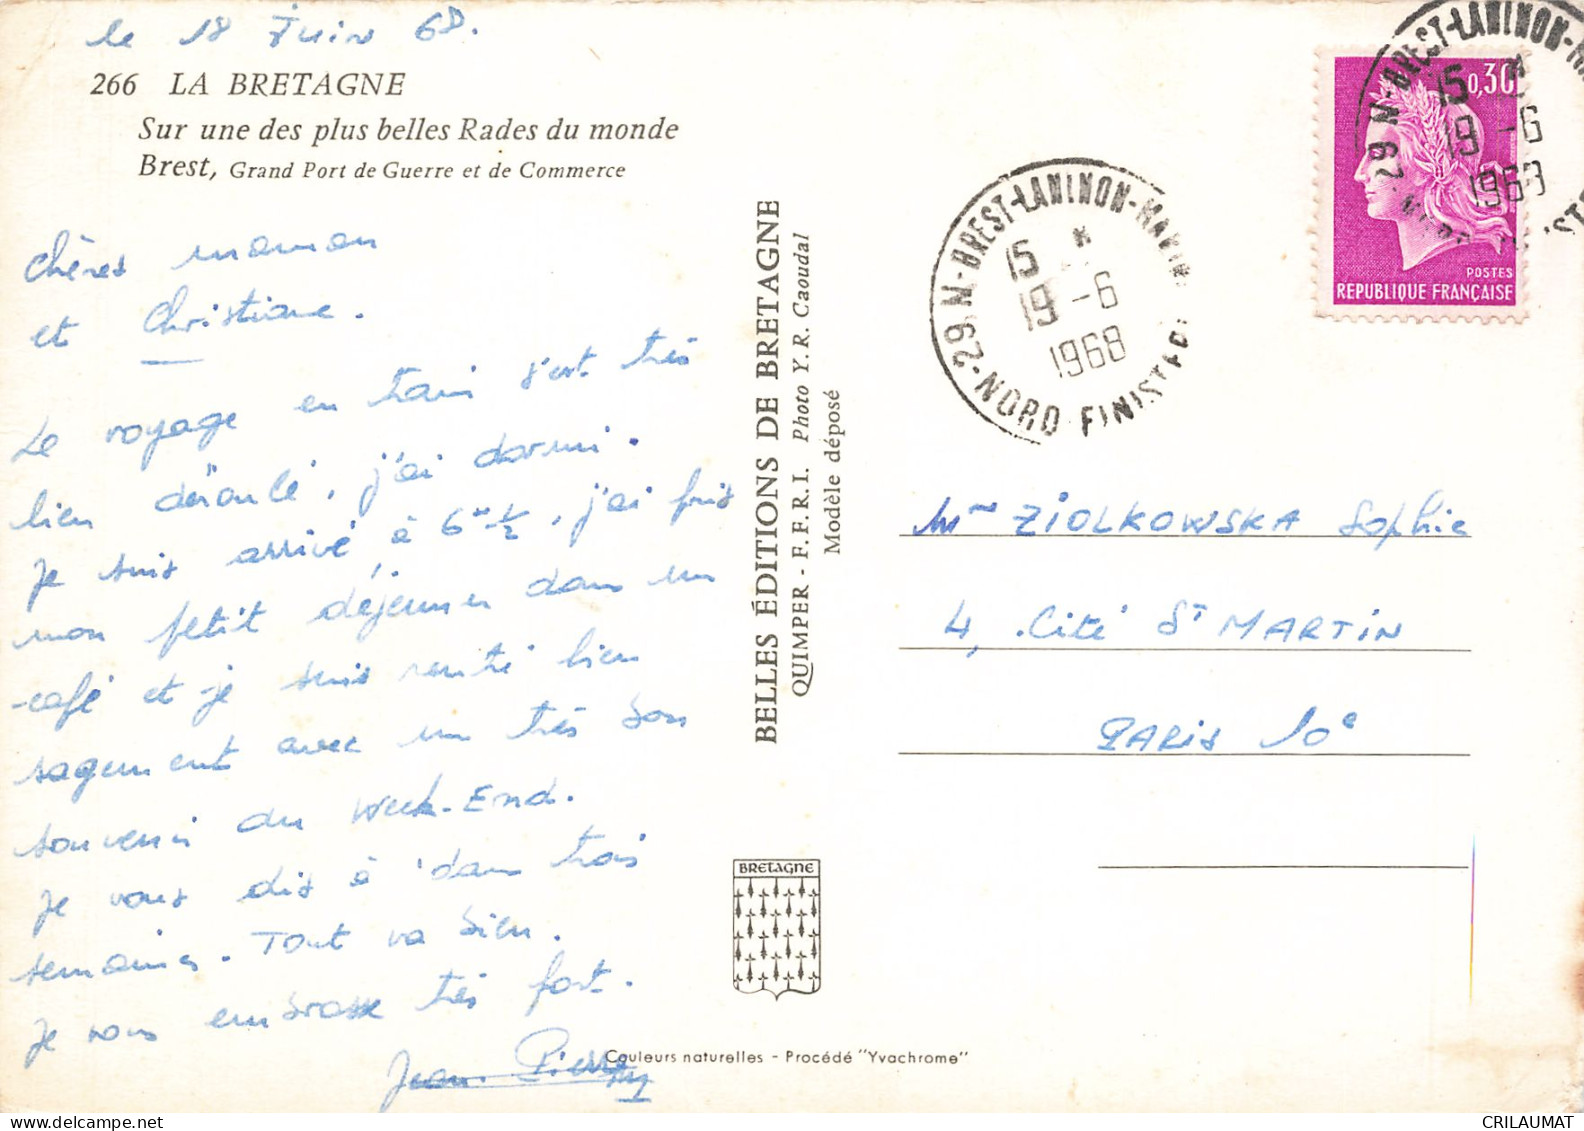 le 18 Juin 68.
266 LA BRETAGNE
Sur une des plus belles Rades du monde
Brest, Grand Port de Guerre et de Commerce
Chères maman
et Christiane.
Le voyage en train s'est très
bien déroulé, j'ai dormi.
Je suis arrivé à 6 1/2, j'ai pris
mon petit déjeuner dans un
café et je suis rentré bien
sagement avec un très bon
souvenir du Week-End.
Je vous dis à dans trois
semaines. Tout va bien.
Je vous embrasse très fort.
Jean Pierre
BELLES ÉDITIONS DE BRETAGNE
QUIMPER - F.F.R.I. Photo Y.R. Caoudal
Modèle déposé
BRETAGNE
Couleurs naturelles - Procédé "Yvachrome"
29 N-BREST-LANINON-MARINE
15 *
19 -6
1968
NORD FINISTERE
0,30
POSTES
REPUBLIQUE FRANÇAISE
29 N-BREST-LANINON-MA
15 *
19 -6
1968
Mme ZIOLKOWSKA Sophie
4, Cité St MARTIN
PARIS 10e
CRILAUMAT